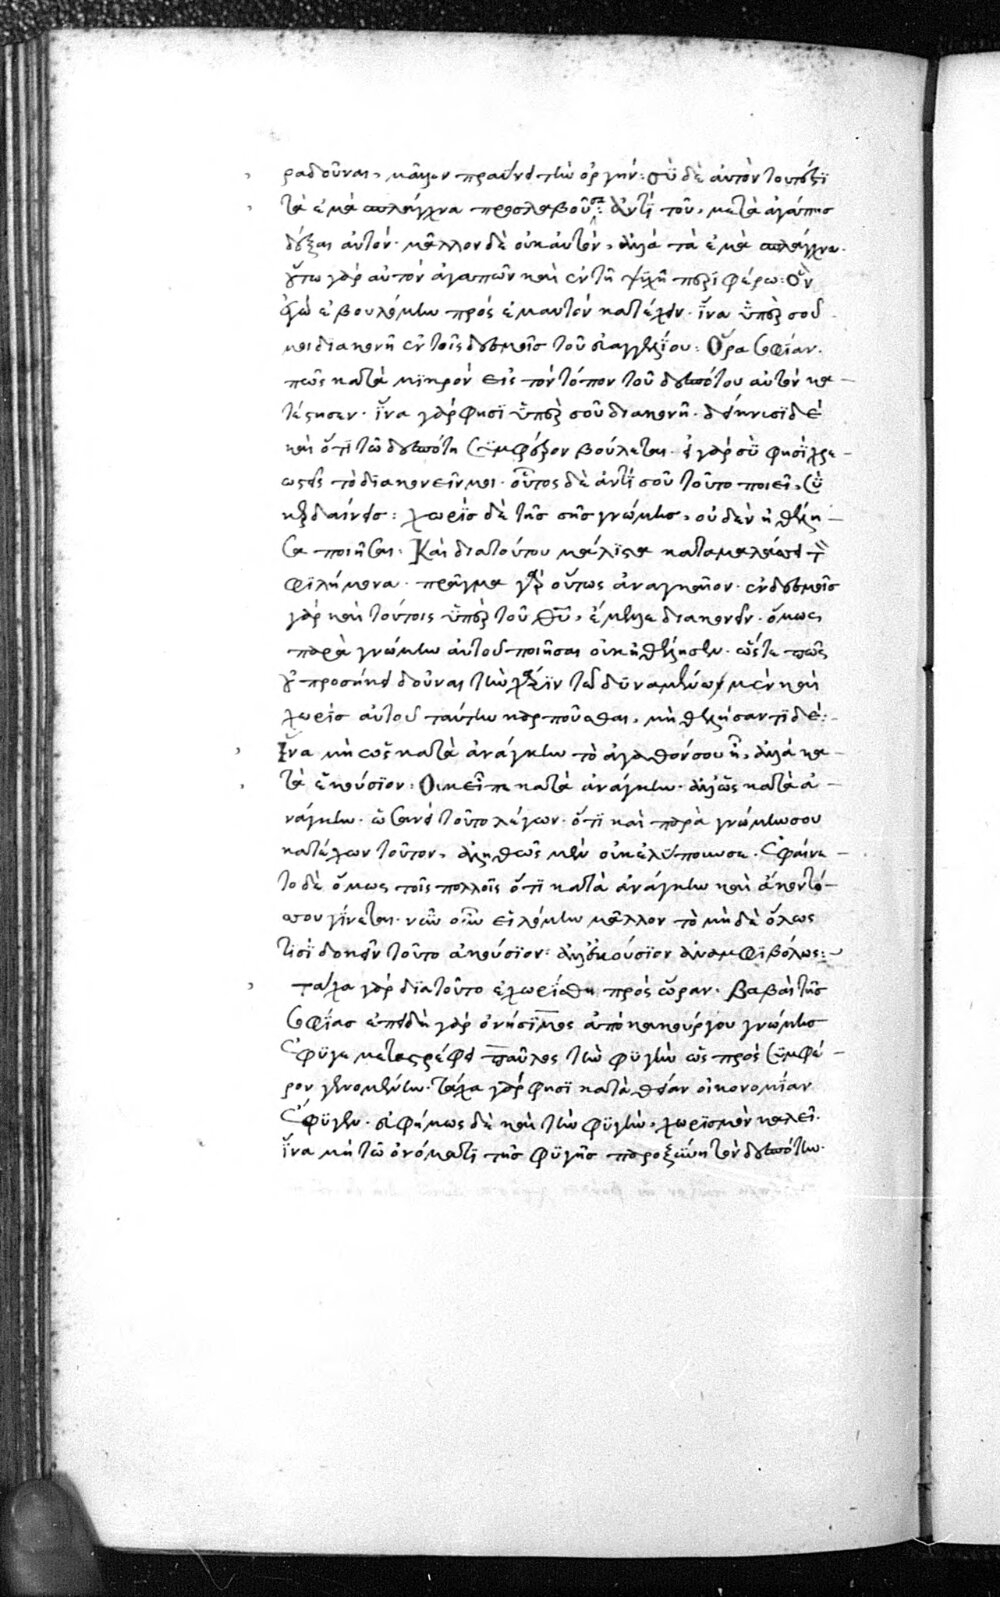 ραδοῦναι, μᾶλλον πραΰνει τὴν ὀργήν: σὺ δὲ αὐτὸν τουτέστι
τὰ ἐμὰ σπλάγχνα προσλαβοῦ: ἀντὶ τοῦ, μετὰ ἀγάπης
δέξαι αὐτόν· μᾶλλον δὲ οὐκ αὐτὸν, ἀλλὰ τὰ ἐμὰ σπλάγχνα·
οὕτω γὰρ αὐτὸν ἀγαπῶν καὶ ἐν τῇ ψυχῇ περιφέρω: Ὃν
ἐγὼ ἐβουλόμην πρὸς ἐμαυτὸν κατέχειν· ἵνα ὑπὲρ σοῦ
μοι διακονῇ ἐν τοῖς δεσμοῖς τοῦ εὐαγγελίου: Ὅρα σοφίαν·
πῶς κατὰ μικρὸν εἰς τὸν τόπον τοῦ δεσπότου αὐτὸν κα
τέστησεν· ἵνα γάρ φησι ὑπὲρ σοῦ διακονῇ· δείκνυσι δὲ
καὶ ὅτι τῷ δεσπότῃ συμφέρον βούλεται· εἰ γὰρ σὺ φησὶ χρε
ωστεῖς τὸ διακονεῖν μοι· οὗτος δὲ ἀντὶ σοῦ τοῦτο ποιεῖ, σὺ
κερδαίνεις: χωρὶς δὲ τῆς σῆς γνώμης, οὐδὲν ἠθέλη
σα ποιῆσαι: Καὶ διατούτου μάλιστα καταμαλάσσει τὸν
φιλήμονα· πρᾶγμα γὰρ οὕτως ἀναγκαῖον· ἐν δεσμοῖς
γὰρ καὶ τούτοις ὑπὲρ τοῦ θυ, ἔμελλε διακονεῖν· ὅμως
παρὰ γνώμην αὐτοῦ ποιῆσαι οὐκ ἠθέλησεν· ὥστε πῶς
οὐ προσήκει δοῦναι τὴν χάριν τῷ δυναμένῳ μὲν καὶ
χωρὶς αὐτοῦ ταύτην καρποῦσθαι, μὴ θελήσαντι δέ:
Ἵνα μὴ ὡς κατὰ ἀνάγκην τὸ ἀγαθόν σου ᾖ, ἀλλὰ κα
τὰ ἑκούσιον: Οὐκ εἶπε κατὰ ἀνάγκην· ἀλλ' ὡς κατὰ ἀ
νάγκην· ὡσανεὶ τοῦτο λέγων· ὅτι καὶ παρὰ γνώμην σου
κατέχων τοῦτον, ἀληθῶς μὲν οὐκ ἐλύπουν σε· ἐφαίνε
το δὲ ὅμως τοῖς πολλοῖς ὅτι κατὰ ἀνάγκην καὶ ἄκοντό
σου γίνεται· νῦν οὖν εἱλόμην μᾶλλον τὸ μὴ δὲ ὅλως
τισὶ δοκεῖν τοῦτο ἀκούσιον: ἀλλ' ἑκούσιον ἀναμφιβόλως:
τάχα γὰρ διατοῦτο ἐχωρίσθη πρὸς ὥραν· Βαβαὶ τῆς
σοφίας ἐπειδὴ γὰρ ὀνήσιμος ἀπὸ κακούργου γνώμης
ἔφυγε μεταστρέφει παῦλος τὴν φυγὴν ὡς πρὸς συμφέ
ρον γενομένην· τάχα γάρ φησι κατὰ θείαν οἰκονομίαν
ἔφυγεν· εὐφήμως δὲ καὶ τὴν φυγὴν, χωρισμὸν καλεῖ·
ἵνα μὴ τῷ ὀνόματι τῆς φυγῆς παροξύνῃ τὸν δεσπότην·